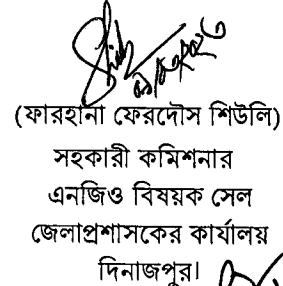 (ফারহানা ফেরদৌস শিউলি)
সহকারী কমিশনার
এনজিও বিষয়ক সেল
জেলাপ্রশাসকের কার্যালয়
দিনাজপুর।